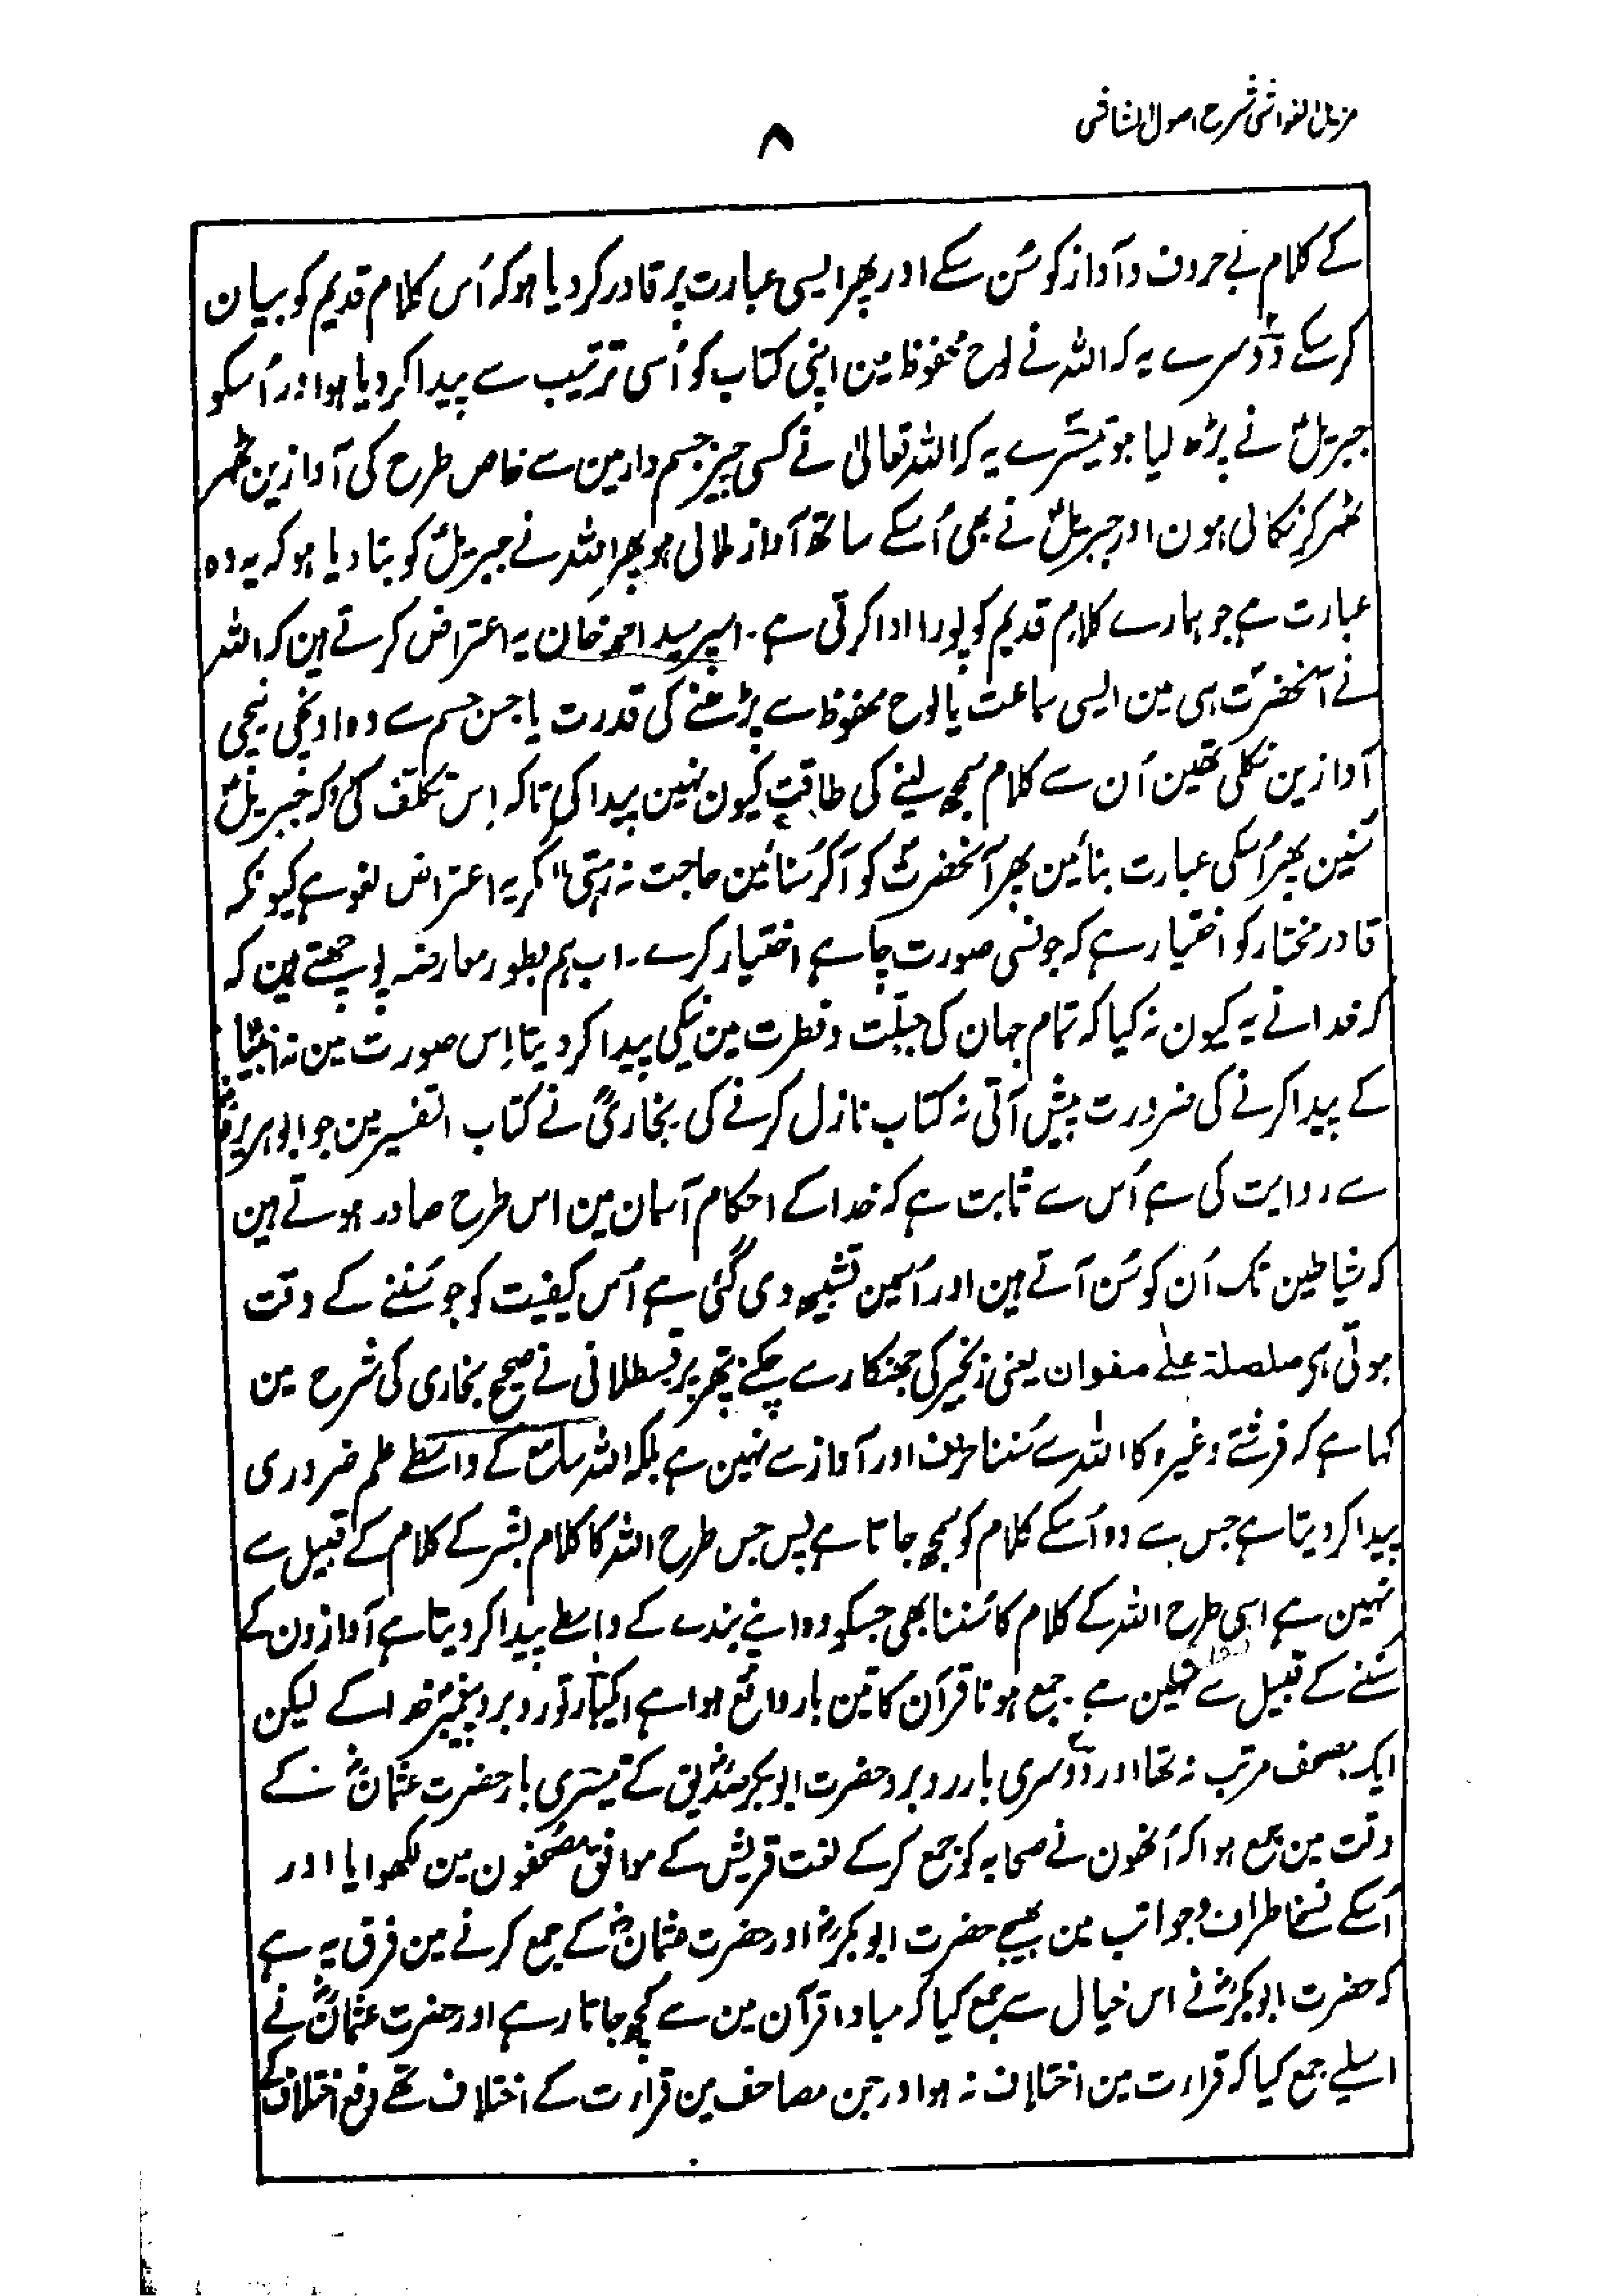 مزیل الغواشی شرح اصول الشاشی
۸
کے کلام بے حروف و آواز کو سُن سکے اور پھر ایسی عبارت پر قادر کردیا ہو کہ اُس کلام قدیم کو بیان
کرسکے دوسرے یہ کہ اللہ نے لوح محفوظ مین اپنی کتاب کو اُسی ترتیب سے پیدا کردیا ہو اور اُسکو
جبریلؑ نے پڑھ لیا ہو تیسرے یہ کہ اللہ تعالیٰ نے کسی چیز جسم دار مین سے خاص طرح کی آوازین ٹھہر
ٹھہر کر نکالی ہون اور جبریلؑ نے بھی اُسکے ساتھ آواز ملالی ہو پھر اللہ نے جبریلؑ کو بتا دیا ہو کہ یہ وہ
عبارت ہے جو ہمارے کلام قدیم کو پورا ادا کرتی ہے۔ اسپر سید احمد خان یہ اعتراض کرتے ہین کہ اللہ
نے آنحضرتؐ ہی مین ایسی سماعت یا لوح محفوظ سے پڑھنے کی قدرت یا جس جسم سے وہ اونچی نیچی
آوازین نکلی تھین اُن سے کلام سمجھ لینے کی طاقت کیون نہین پیدا کی تاکہ اِس تکلف کی کہ جبریلؑ
سُنین پھر اُسکی عبارت بنائین پھر آنحضرتؐ کو آکر سُنائین حاجت نہ رہتی" مگر یہ اعتراض لغو ہے کیونکہ
قادر مختار کو اختیار ہے کہ جونسی صورت چاہے اختیار کرے۔ اب ہم بطور معارضہ پوچھتے ہین کہ
کہ خدا نے یہ کیون نہ کیا کہ تمام جہان کی جبلّت و فطرت مین نیکی پیدا کردیتا اِس صورت مین نہ انبیا
کے پیدا کرنے کی ضرورت پیش آتی نہ کتاب نازل کرنے کی بخاریؒ نے کتاب التفسیر مین جو ابوہریرہؓ
سے روایت کی ہے اُس سے ثابت ہے کہ خدا کے احکام آسمان مین اس طرح صادر ہوتے ہین
کہ شیاطین تک اُن کو سُن آتے ہین اور اُسمین تشبیہ دی گئی ہے اُس کیفیت کو جو سُننے کے وقت
ہوتی ہی صلصلۃ علےٰ صفوان یعنی زنجیر کی جھنکار سے چکنے پتھر پر قسطلانی نے صحیح بخاری کی شرح مین
کہا ہے کہ فرشتے وغیرہ کا اللہ سے سُننا حرف اور آواز سے نہین ہے بلکہ اللہ سامع کے واسطے علم ضروری
پیدا کردیتا ہے جس سے وہ اُسکے کلام کو سمجھ جاتا ہے پس جس طرح اللہ کا کلام بشر کے کلام کے قبیل سے
نہین ہے اسی طرح اللہ کے کلام کا سُننا بھی جسکو وہ اپنے بندے کے واسطے پیدا کردیتا ہے آوازون کے
سُننے کے قبیل سے نہین ہے۔ جمع ہونا قرآن کا تین بار واقع ہوا ہے ایکبار تو روبرو پیغمبرؐ خدا کے لیکن
ایک مصحف مرتب نہ تھا اور دوسری بار روبرو حضرت ابوبکر صدیقؓ کے تیسری بار حضرت عثمانؓ کے
وقت مین جمع ہوا کہ اُنھون نے صحابہ کو جمع کرکے لغت قریش کے موافق مصحفون مین لکھوایا اور
اُسکے نسخے اطراف و جوانب مین بھیجے حضرت ابوبکرؓ اور حضرت عثمانؓ کے جمع کرنے مین فرق یہ ہے
کہ حضرت ابوبکرؓ نے اس خیال سے جمع کیا کہ مبادا قرآن مین سے کچھ جاتا رہے اور حضرت عثمانؓ نے
اسلیے جمع کیا کہ قرارت مین اختلاف نہ ہو اور جن مصاحف مین قرارت کے اختلاف تھے رفع اختلاف کے